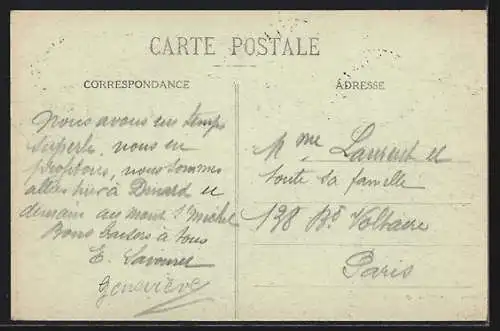 CARTE POSTALE
CORRESPONDANCE
ADRESSE
Nous avons un temps
superbe, nous en
profitons, nous sommes
allés hier à Dinard et
demain au mont St Michel
Bons baisers à tous
E.
Geneviève
Mme Laurent et
toute sa famille
128 Bd Voltaire
Paris